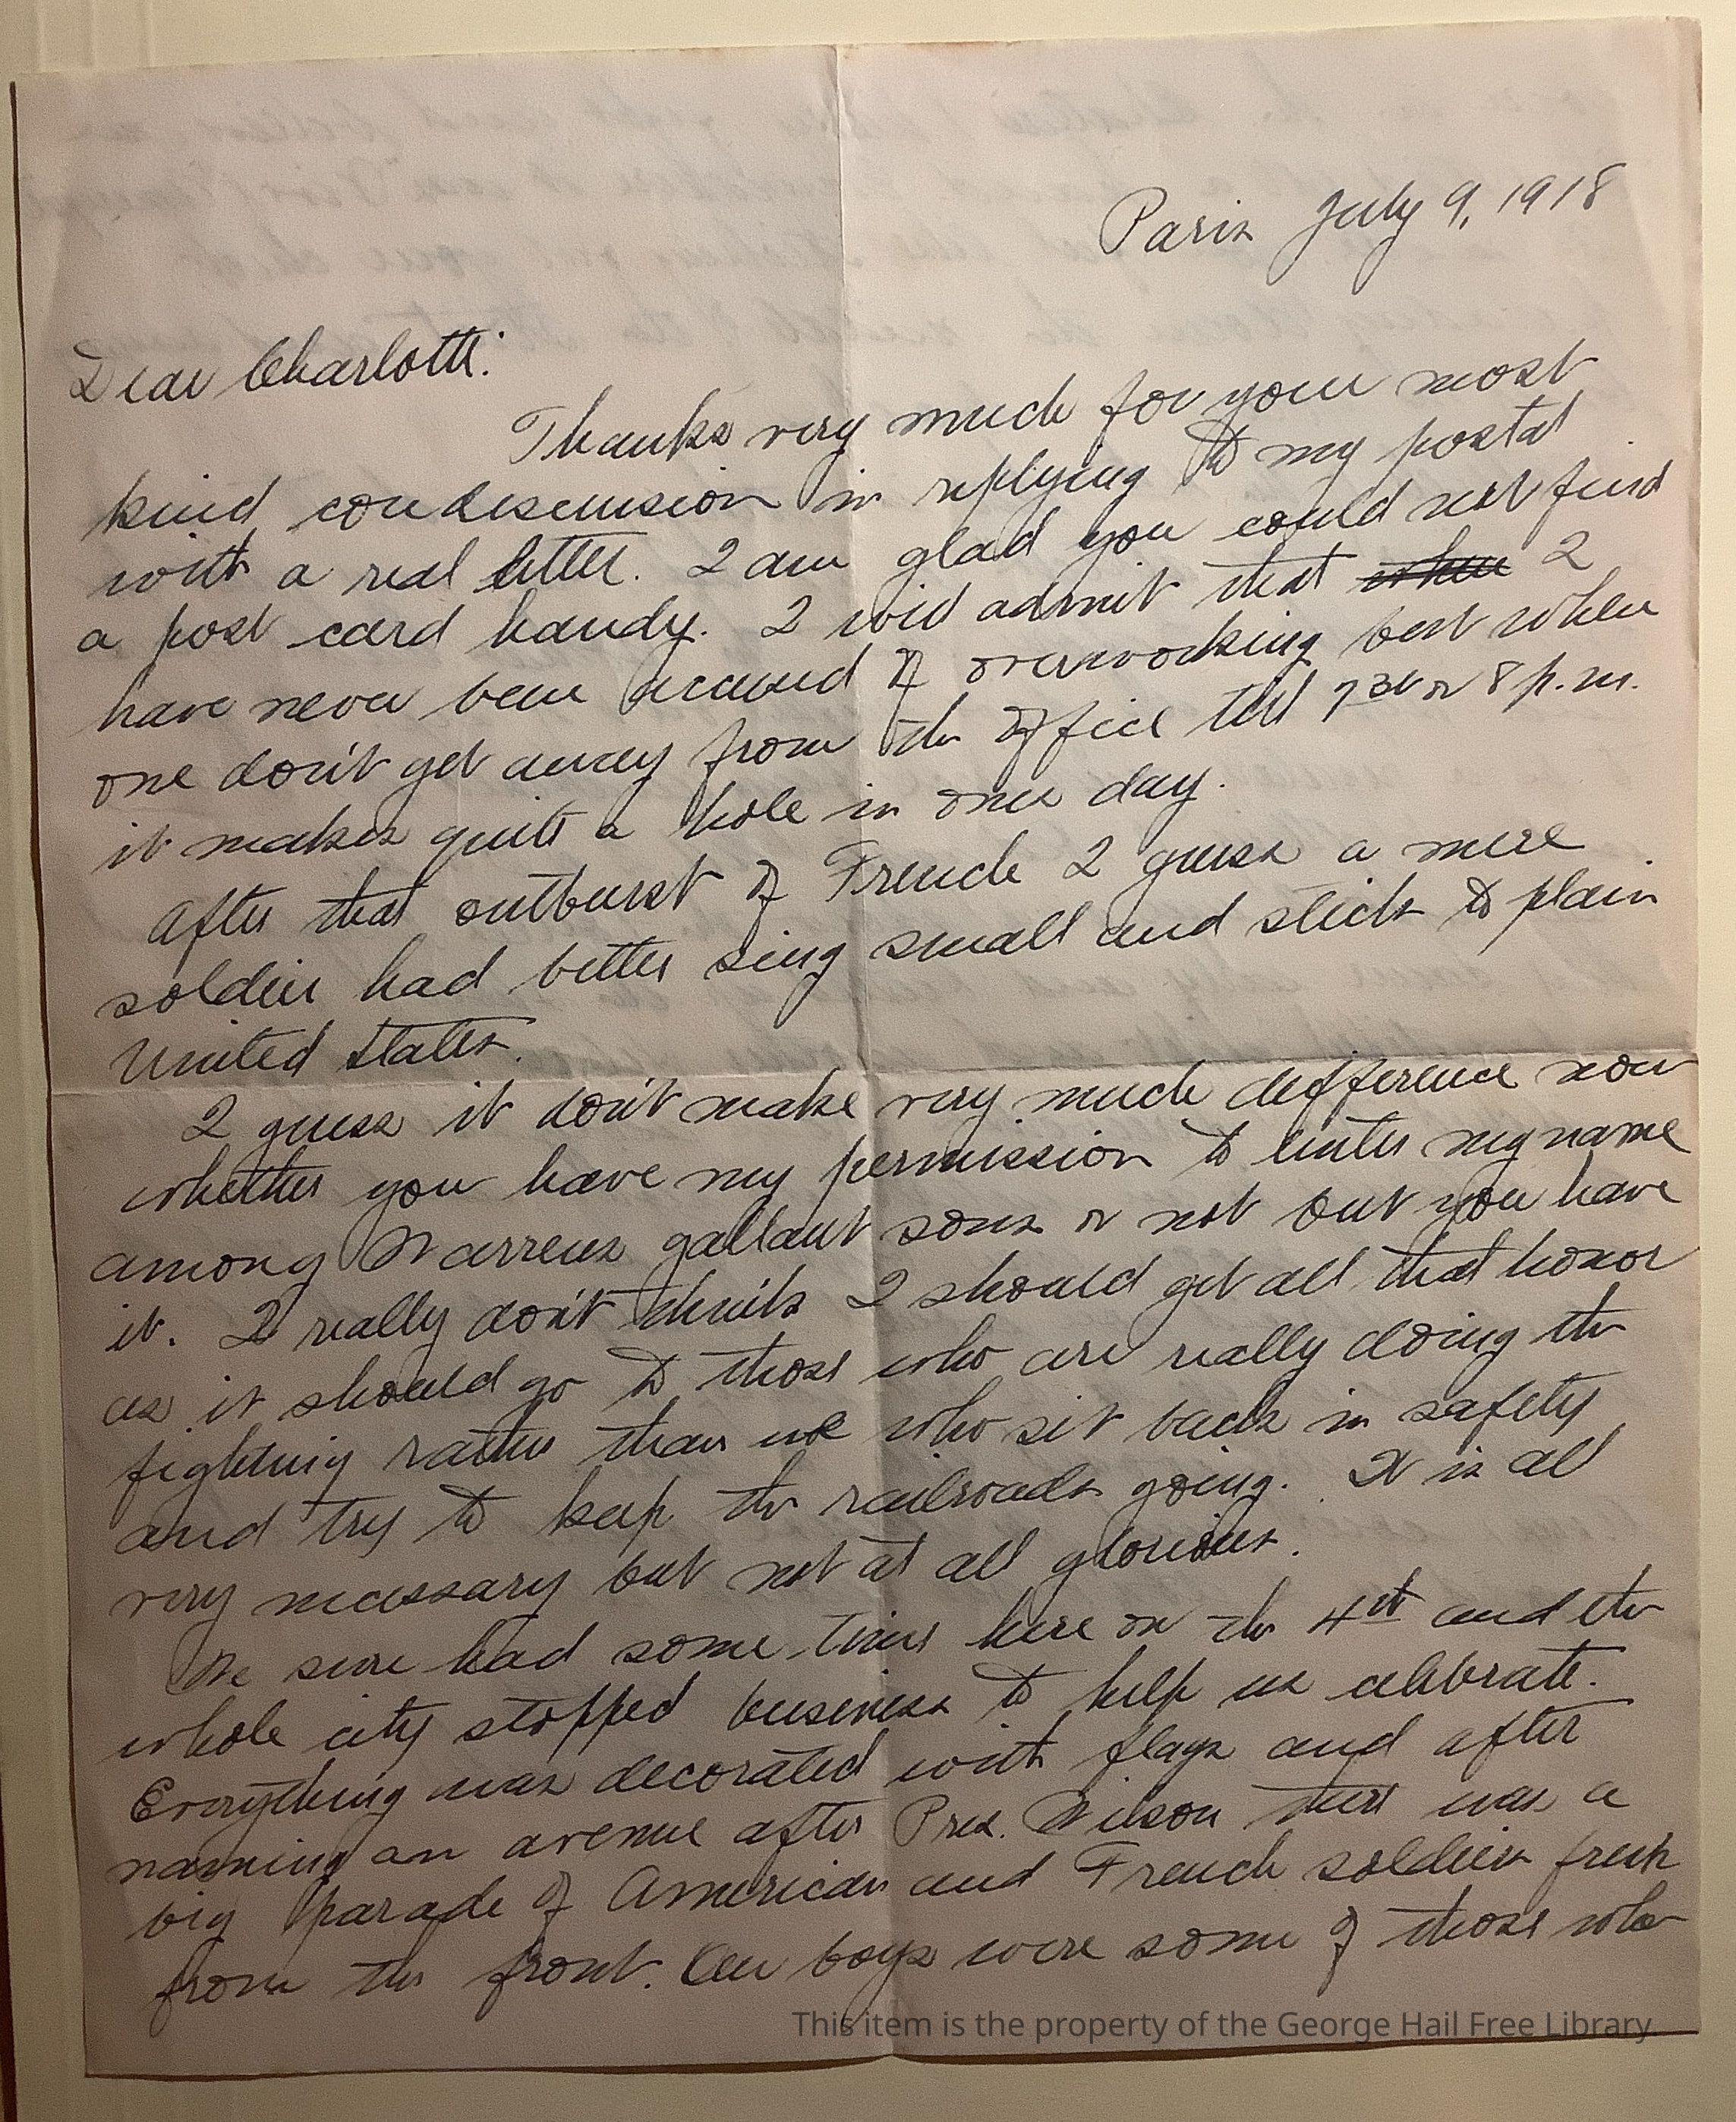 Paris July 9, 1918
Dear Charlotte:
Thanks very much for your most
kind condescension in replying to my postal
with a real letter. I am glad you could not find
a post card handy. I will admit that when I
have never been accused of overworking but when
one don't get away from the office till 7 30 or 8 p.m.
it makes quite a hole in ones day.
After that outburst of French I guess a mere
soldier had better sing small and stick to plain
United States.
I guess it don't make very much difference now
whether you have my permission to enter my name
among Warrens gallant sons or not but you have
it. I really don't think I should get all that honor
as it should go to those who are really doing the
fighting rather than we who sit back in safety
and try to keep the railroads going. It is all
very necessary but not at all glorious.
We sure had some time here on the 4th and the
whole city stopped business to help us celebrate.
Everything was decorated with flags and after
naming an avenue after Pres. Wilson there was a
big parade of American and French soldiers fresh
from the front. Our boys were some of those who
This item is the property of the George Hail Free Library.